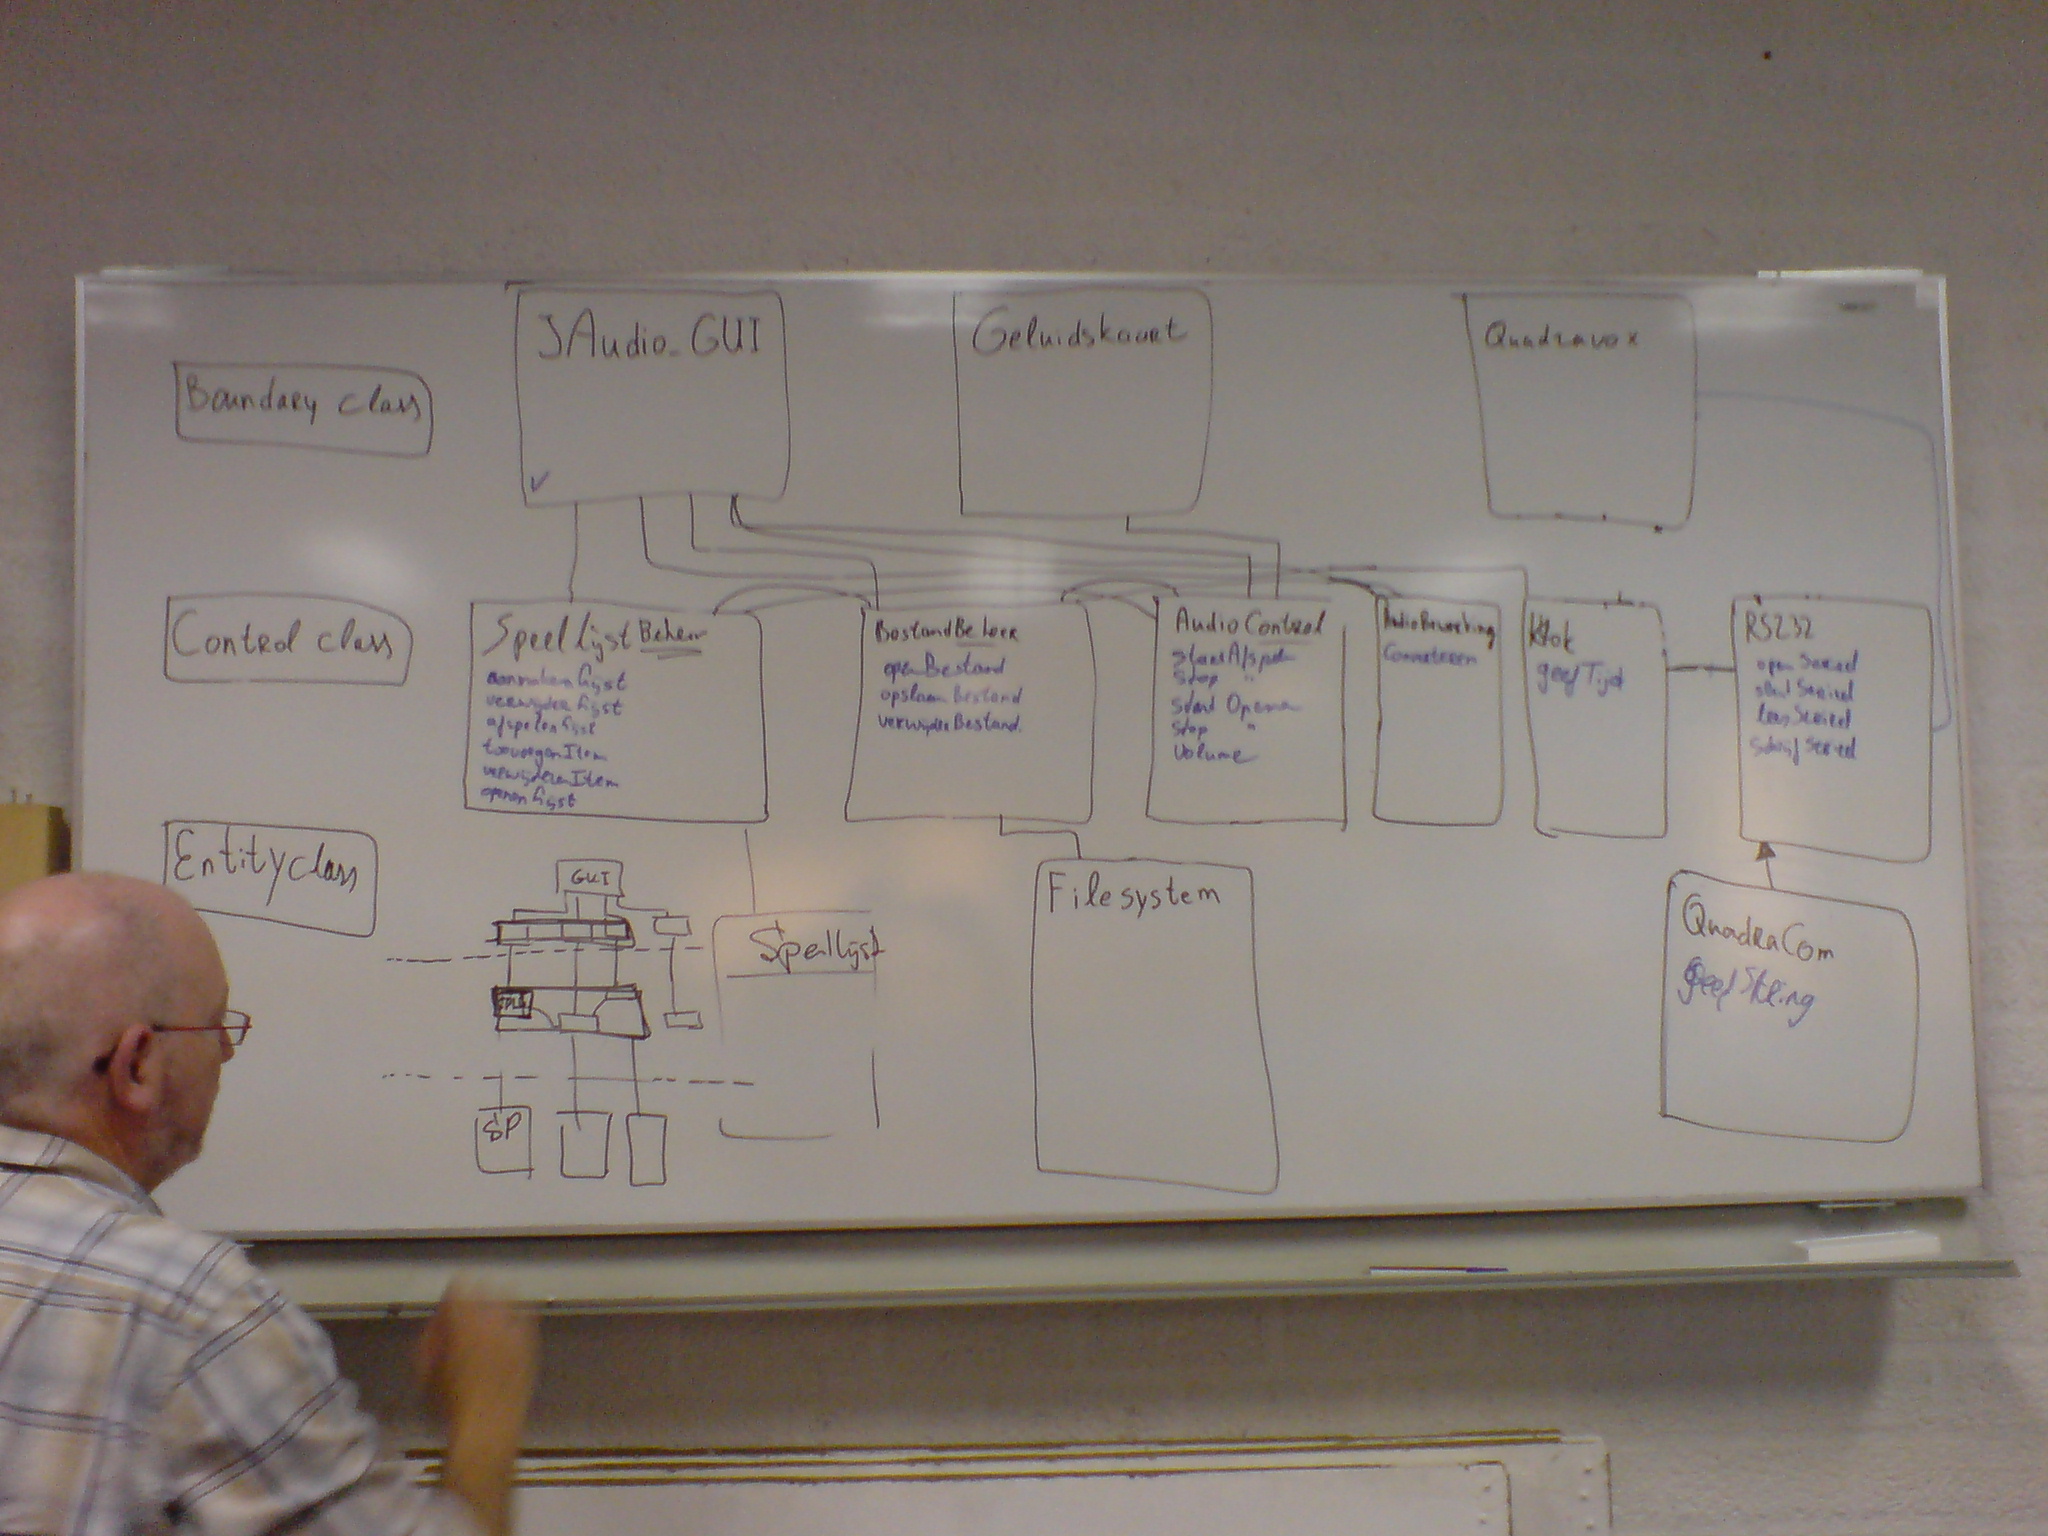 JAudio_GUI
Geluidskaart
Quadravox
Boundary class
Control class
Speellijst Beheer
aanmaken lijst
verwijder lijst
afspelen lijst
toevoegen Item
verwijderen Item
openen lijst
Bestand Beheer
open Bestand
opslaan Bestand
verwijder Bestand
Audio Control
start Afspelen
Stop "
Start Opname
Stop "
Volume
Audio Bewerking
Converteren
Klok
geef Tijd
RS232
open Serieel
sluit Serieel
lees Serieel
schrijf Serieel
Entity class
GUI
SPLB
SP
Speellijst
Filesystem
QuadraCom
geef String